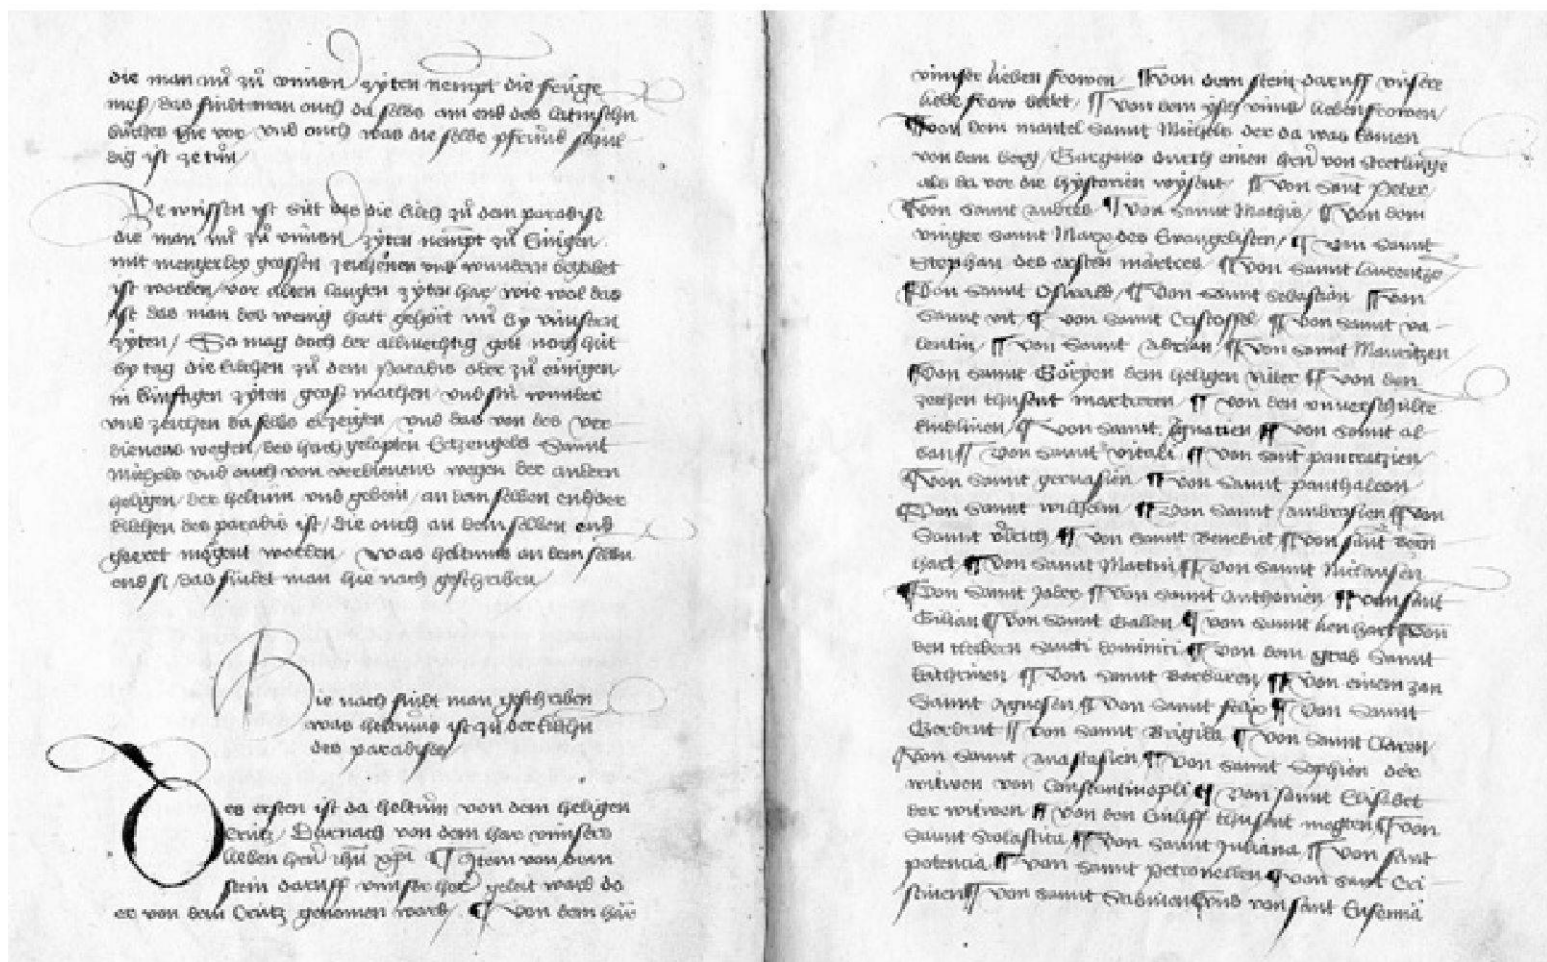 die man nu zů vnnsen zyten nempt die frůge
mes / das findt man ouch da selbs am end des latinschn
bůches hie vor vnd ouch was die selbe pfrůnd schul
dig ist ze tůn /
Ze wissen ist sid das die kilch zů dem paradyse
die man nu zů vnnsen zyten nempt zů Einigen
mit mengerley grossen zeichenen vnd wundern begabet
ist worden / vor alten langen zyten har / wie wol das
ist das man des wenig hatt gehört nu by vnnsern
zyten / So mag doch der allmechtig gott noch hüt
by tag die kilchen zů dem Paradis oder zů einigen
in künftigen zyten groß machen / vnd sin wunder
vnd zeichen da selbs erzeigen / vnd das von des ver
dienens wegen / des hoch gelopten Ertzengels Sannt
Michels vnd ouch von verdienens wegen der andern
heligen / der heltum vnd gebein / an dem selben end der
kilchen des paradis ist / die ouch an dem selben end
geeret mögent werden / Was heltums an dem selbn
end si / das findet man hie nach geschriben /
Hie nach findt man geschriben
was heltums ist zů der kilchn
des paradyses /
Des ersten ist da heltum von dem heligen
Crütz / Darnach von dem har vnnsers
lieben herr ihu xpi ¶ Item von dem
stein daruff vnnser her geleit ward do
er von dem Crütz genomen ward / ¶ Von dem har
vnnser lieben frowen ¶ Von dem stein daruff vnnsere
liebe frow bettet / ¶ Von dem vnns lieben frowen /
¶ Von dem mantel Sannt Michels der da was komen
von dem berg / Gargano durch einen hern von Stretlinge
als da vor die hystorien wysent / ¶ Von Sant Peter
¶ Von Sannt andres ¶ Von Sannt Mathis / ¶ Von dem
vinger Sannt Marx des Evangelisten / ¶ Von Sannt
Stephan des ersten martres ¶ Von Sannt laurentze
¶ Von Sannt Oswald / ¶ Von Sannt Sebastion ¶ Von
Sannt vit / ¶ Von Sannt Cristoffel ¶ Von Sannt va -
lentin / ¶ Von Sannt Adrian ¶ Von Sannt Mauritzen
¶ Von Sannt Göryen dem heligen ritter ¶ Von den
zechen thusent martreren ¶ Von den vnverschulte
kindlinen / ¶ Von Sannt Ignatien ¶ Von Sannt al -
ban ¶ Von Sannt vitali ¶ Von Sant pancratzien /
¶ Von Sannt geruasien ¶ Von Sannt panthaleon /
¶ Von Sannt wilhelm / ¶ Von Sannt Ambrosien ¶ Von
Sannt Vlrich ¶ Von Sannt Benedict ¶ Von Sant Bern
hart ¶ Von Sannt Martin ¶ Von Sannt Niclausen
¶ Von Sannt ¶ Von Sannt Anthonien ¶ Von Sant
Gilian ¶ Von Sannt Gallen ¶ Von Sannt lienhart ¶ Von
den kleidern Sancti dominici ¶ Von dem grab Sannt
kathrinen ¶ Von Sannt Barbaren ¶ Von einem zan
Sannt Agnesen ¶ Von Sannt felix ¶ Von Sannt
Gerdrut ¶ Von Sannt Brigida ¶ Von Sannt Claren
¶ Von Sannt Anastasien ¶ Von Sannt Sophien der
witwen von Constantinopli ¶ Von Sannt Elisabet
der witwen ¶ Von den Einliff thusent megten ¶ Von
Sannt Scolastica ¶ Von Sannt Juliana ¶ Von Sant
potencia ¶ Von Sannt Petronellen ¶ Von Sant Cri
stinen ¶ Von Sannt Sabinen ¶ Vnd von Sant Eufemia